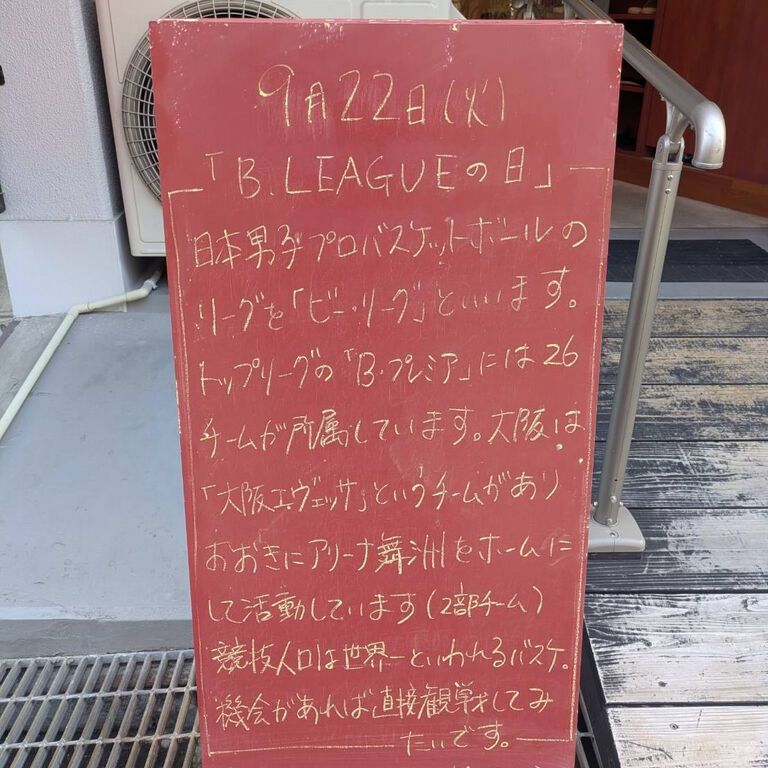 9月22日(火)
「B.LEAGUEの日」
日本男子プロバスケットボールの
リーグを「ビー・リーグ」といいます。
トップリーグの「B・プレミア」には26
チームが所属しています。大阪は
「大阪エヴェッサ」というチームがあり
おおきにアリーナ舞洲をホームに
して活動しています(2部チーム)
競技人口は世界一といわれるバスケ。
機会があれば直接観戦してみ
たいです。